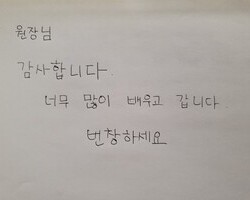 원장님
감사합니다
너무 많이 배우고 갑니다
번창하세요